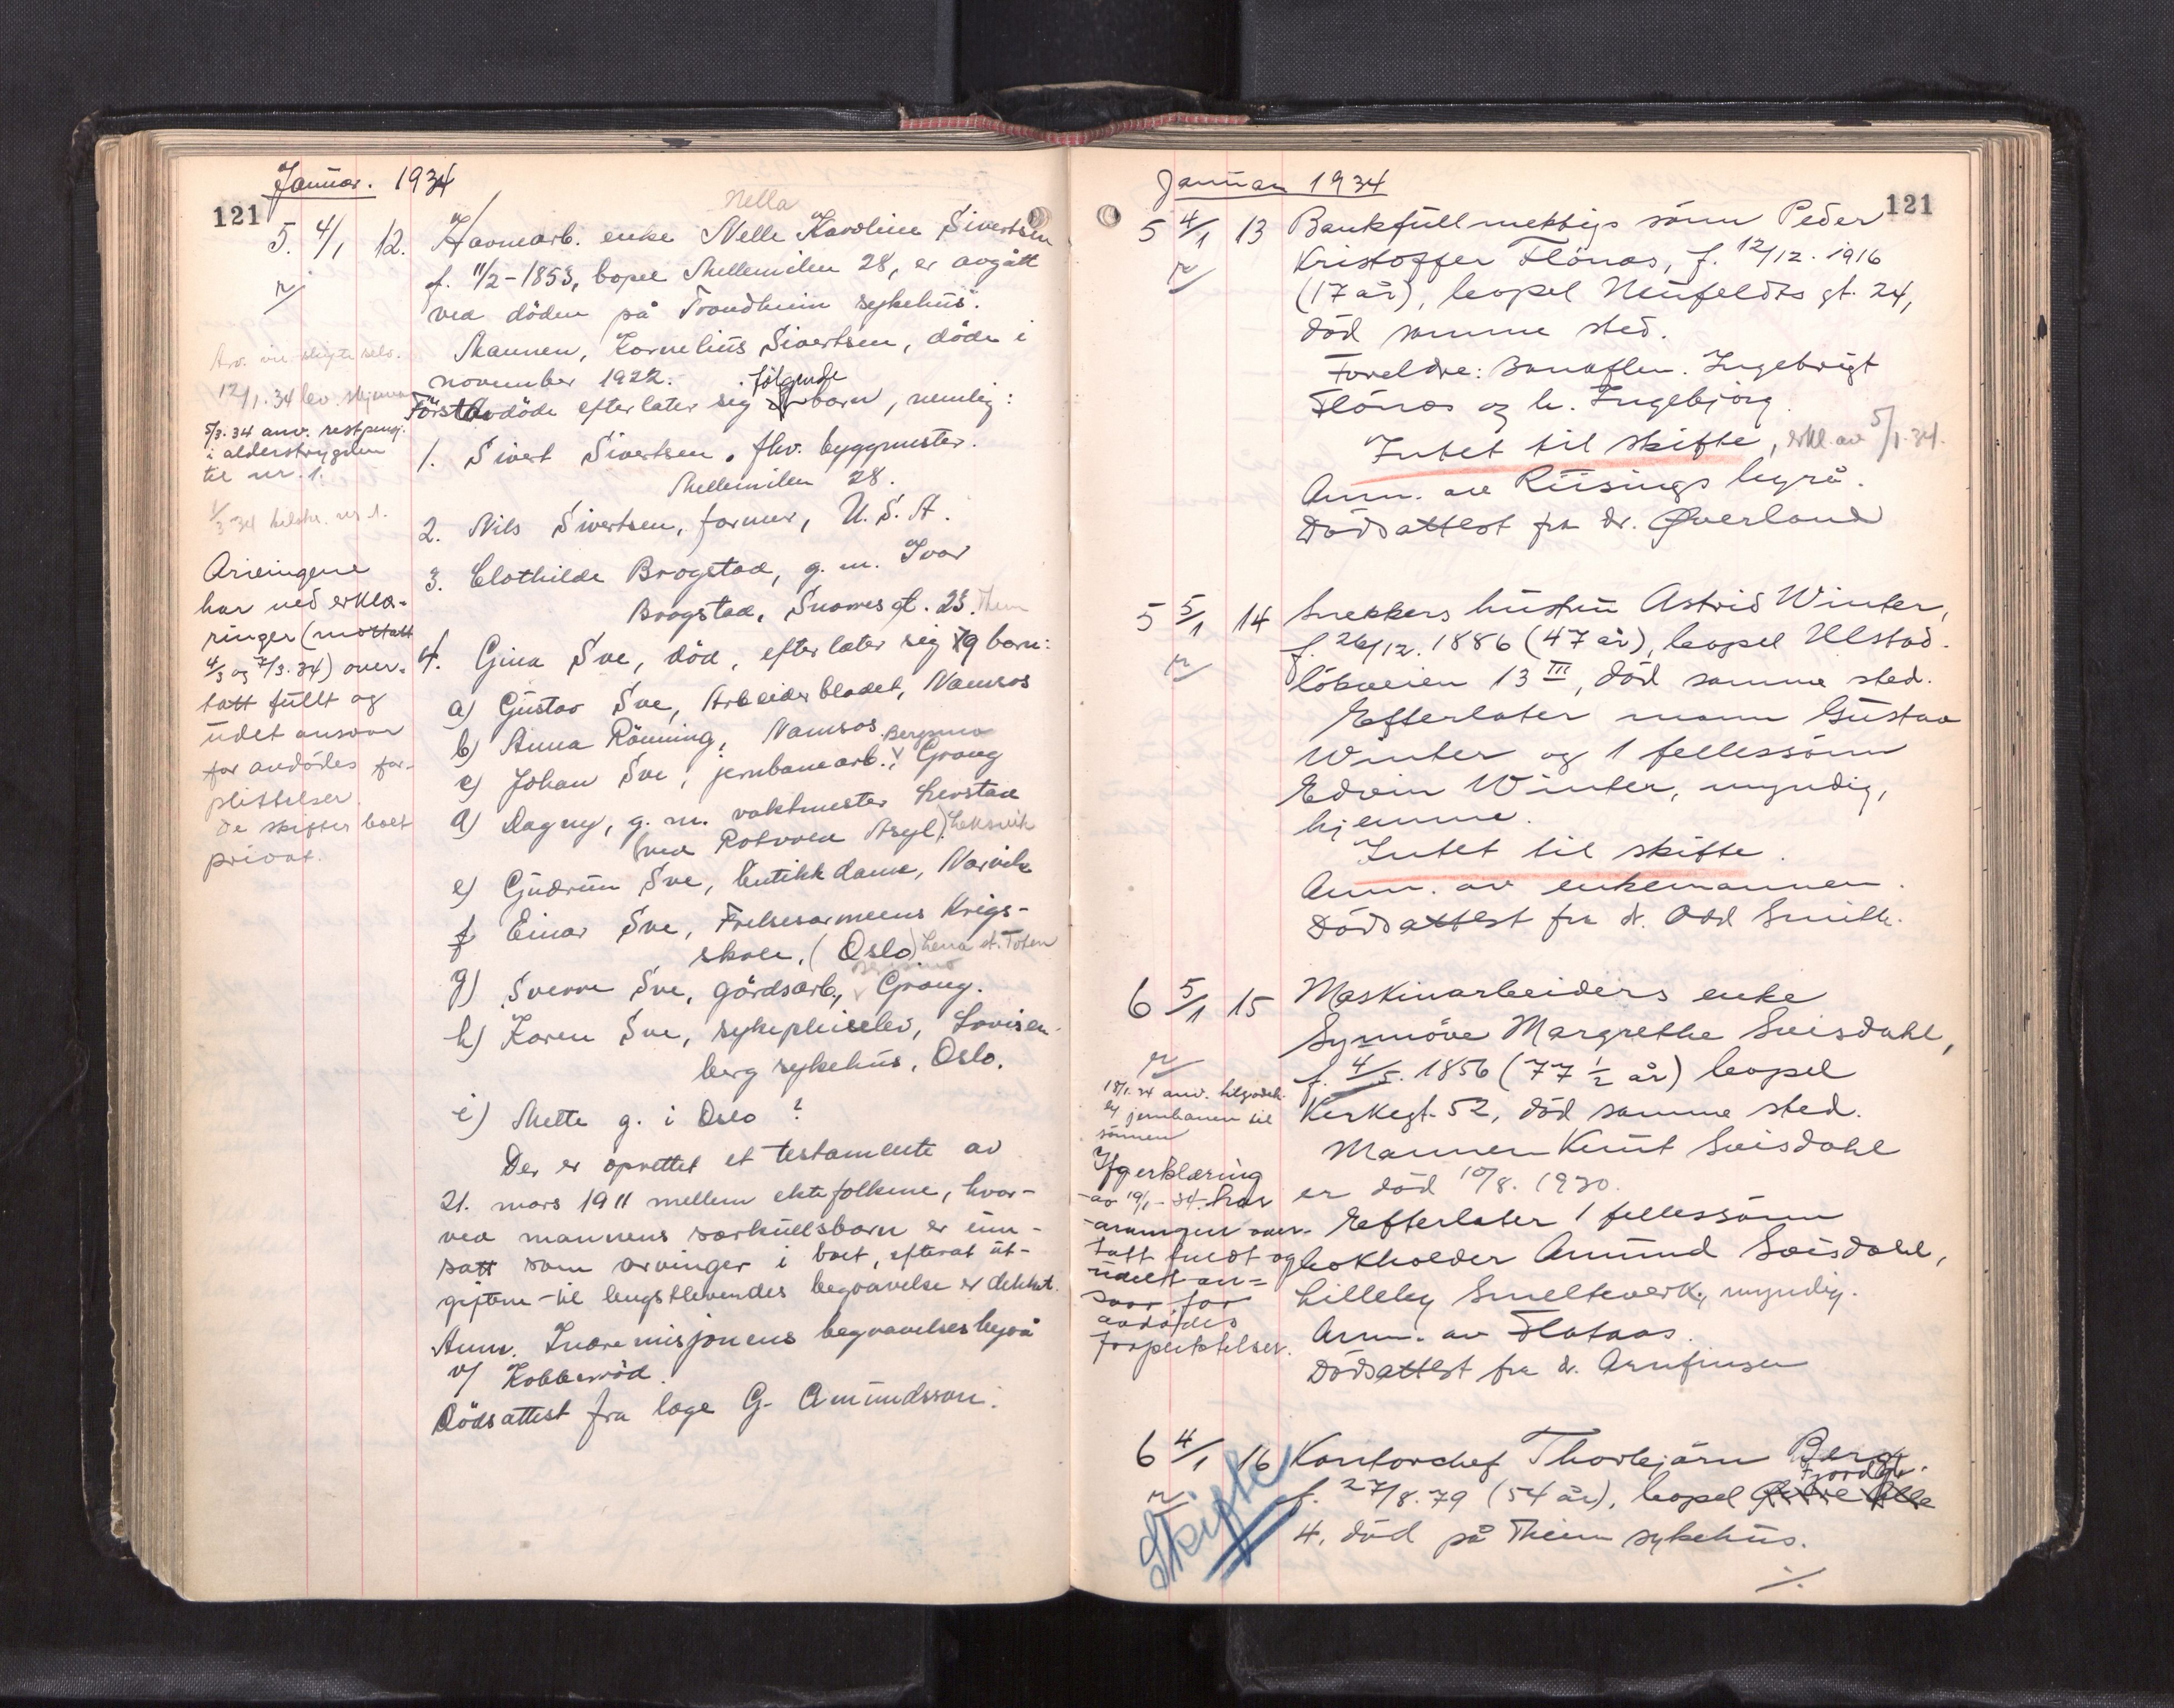 Januar. 1934
121
5. 4/1 12. Havnearb. enke Nelle Karoline Sivertsen
Nella
f. 11/2-1853, bopel Mellemilen 28, er avgått
ved döden på Trondheim sykehus.
Mannen, Kornelius Sivertsen, döde i
november 1922.
Förstavdöde efterlater sig følgende barn, nemlig:
1. Sivert Sivertsen, fhv. byggmester.
Mellemilen 28.
2. Nils Sivertsen, farmer, U.S.A.
3. Clothilde Brogstad, g. m. Ivar
Brogstad, Snorresgt. 23. Thjem
4. Gina Sve, död, efterlater sig 9 barn:
a) Gustav Sve, Arbeiderbladet, Namsos
b) Anna Rönning, Namsos
c) Johan Sve, jernbanearb., Bergsmo Grong
d) Dagny, g. m. vaktmester Levstad
(ved Rotvold Asyl) Leksvik
e) Gudrun Sve, butikkdame, Narvik
f Einar Sve, Frelsesarmeens Krigs-
skole, (Oslo) Lena st. Toten
g) Sverre Sve, gårdsarb., Bergsmo Grong.
h) Karen Sve, sykepleielev, Lovisen-
berg sykehus, Oslo.
i) Mette g. i Oslo ?
Der er oprettet et testamente av
21. mars 1911 mellem ektefolkene, hvor-
ved mannens særkullsbarn er inn-
satt som arvinger i boet, efterat ut-
giftene til lengstlevendes begravelse er dekket.
Anm. Indremisjonens begravelsesbyrå
v/ Kobberöd.
Dödsattest fra læge G. Amundsson.
Arv. vil skifte selv.
12/1.34 lev. skjema
5/3.34 anv. restpeng.
i alderstrygden
til nr. 1.
Arvingene
har ved erklæ-
ringer (mottatt
4/3 og 7/3.34) over-
tatt fullt og
udelt ansvar
for avdödes for-
pliktelser.
De skifter boet
privat.
Januar 1934
121
5 4/1 13 Bankfullmektigs sönn Peder
Kristoffer Flönæs, f. 12/12. 1916
(17 år), bopel Neufeldts gt. 24,
död samme sted.
Foreldre: Ingebrigt
Flönæs og h. Ingebjörg.
Intet til skifte, erkl. av 5/1.34.
Anm. av Riisings byrå.
Dödsattest fra dr. Øverland
5 5/1 14 Snekkers hustru Astrid Winter,
f. 26/12. 1886 (47 år), bopel Ulstad-
lökveien 13 III, död samme sted.
Efterlater mann Gustav
Winter og 1 fellessönn
Edvin Winter, myndig,
hjemme.
Intet til skifte.
Anm. av enkemannen.
Dödsattest fra dr. Odd Smith.
6 5/1 15 Maskinarbeiders enke
Synnöve Margrethe Svisdahl,
f. 4/5. 1856 (77 1/2 år) bopel
Kirkegt. 52, död samme sted.
Mannen Knut Svisdahl
er död 10/8. 1930.
Efterlater 1 fellessönn
bokholder Amund Svisdahl,
Lilleby Smelteverk, myndig.
Anm. av Flataas.
Dödsattest fra dr. Arnfinsen
18/1.34 anv. tilgodeh.
by jernbanen til
sönnen
Ifg erklæring
av 19/1-34 har
arvingen over-
tatt fuldt og
udelt an-
svar for
avdödes
forpliktelser.
6 4/1 16 Kontorchef Thorbjörn Berg,
f. 27/8.79 (54 år), bopel Fjordgt.
4. död på Thjem sykehus.
Skifte